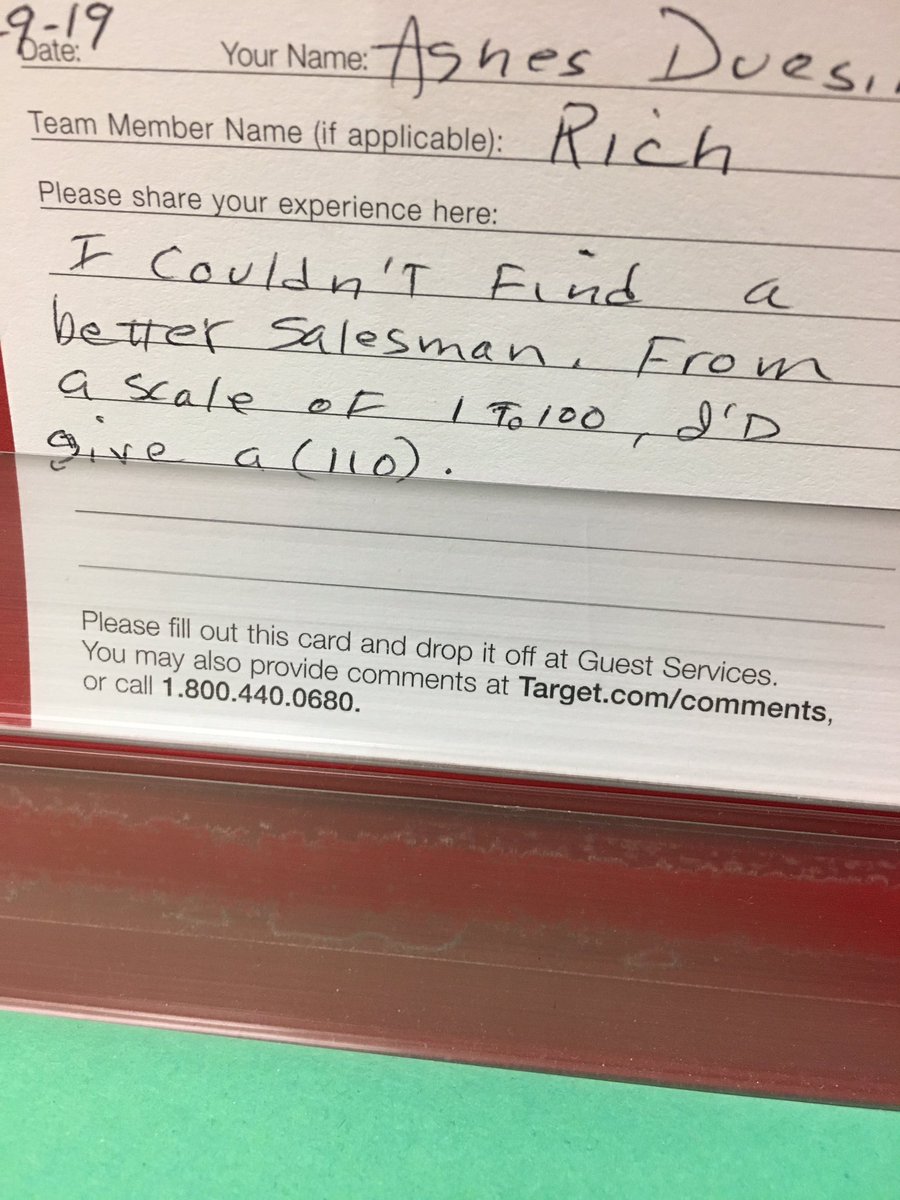 -9-19
Date: Your Name: Agnes
Team Member Name (if applicable): Rich
Please share your experience here:
I Couldn'T Find a
better Salesman. From
a scale of 1 To 100, I'D
give a (110).
Please fill out this card and drop it off at Guest Services.
You may also provide comments at Target.com/comments,
or call 1.800.440.0680.